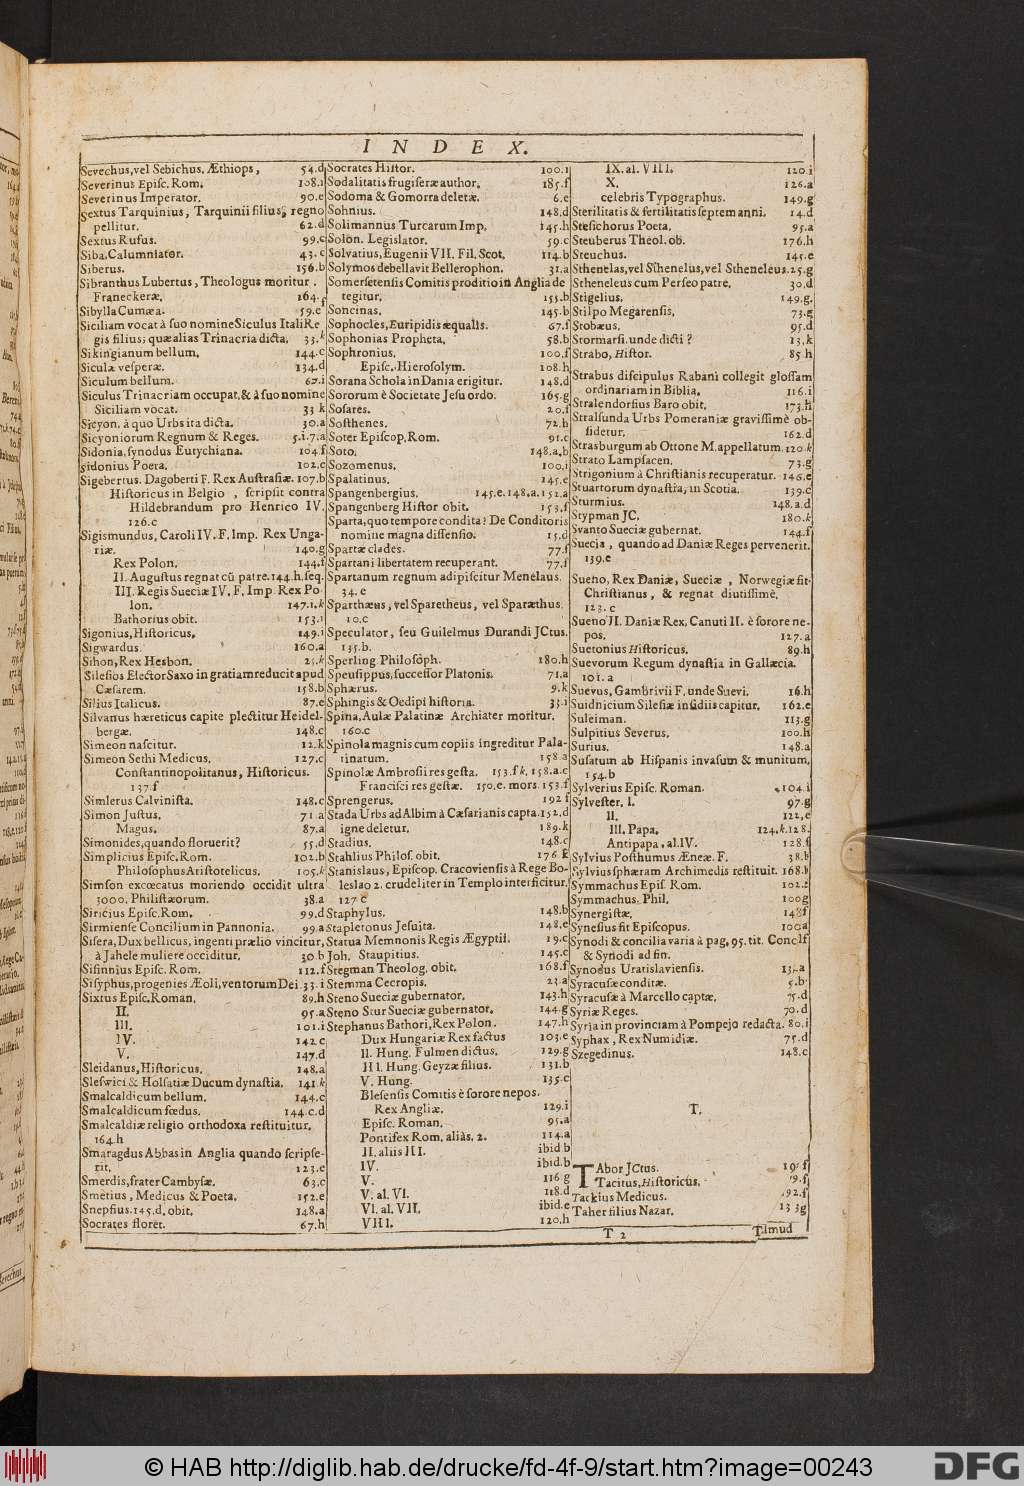 INDEX.
Sevechus, vel Sebichus. Æthiops, 54.d
Severinus Episc. Rom. 108.i
Severinus Imperator. 90.e
Sextus Tarquinius, Tarquinii filius, regno
pellitur. 62.d
Sextus Rufus. 99.c
Siba, Calumniator. 43.c
Siberus. 156.b
Sibranthus Lubertus, Theologus moritur.
Franeckeræ. 164.f
Sibylla Cumæa. 59.e
Siciliam vocat à suo nomine Siculus Itali Re
gis filius; quæ alias Trinacria dicta. 33.k
Sikingianum bellum. 144.c
Siculæ vesperæ. 134.d
Siculum bellum. 67.i
Siculus Trinacriam occupat, & à suo nomine
Siciliam vocat. 33 k
Sicyon, à quo Urbs ita dicta. 30.a
Sicyoniorum Regnum & Reges. 5.i.7.a
Sidonia, synodus Eutychiana. 104.f
Sidonius Poeta. 102.c
Sigebertus. Dagoberti F. Rex Austrasiæ. 107.b
Historicus in Belgio, scripsit contra
Hildebrandum pro Henrico IV.
126.c
Sigismundus, Caroli IV. F. Imp. Rex Unga-
riæ. 140.g
Rex Polon. 144.f
II. Augustus regnat cũ patre. 144.h. seq.
III. Regis Sueciæ IV. F. Imp. Rex Po
lon. 147.1.k
Bathorius obit. 153.i
Sigonius, Historicus. 149.i
Sigwardus. 160.a
Sihon, Rex Hesbon. 25.k
Silesios Elector Saxo in gratiam reducit apud
Cæsarem. 158.b
Silius Italicus. 87.e
Silvanus hæreticus capite plectitur Heidel-
bergæ. 148.c
Simeon nascitur. 12.k
Simeon Sethi Medicus. 127.c
Constantinopolitanus, Historicus.
137.f
Simlerus Calvinista. 148.c
Simon Justus. 71.a
Magus. 87.a
Simonides, quando floruerit? 55.d
Simplicius Episc. Rom. 102.b
Philosophus Aristotelicus. 105.k
Simson excœcatus moriendo occidit ultra
3000. Philistæorum. 38.a
Siricius Episc. Rom. 99.d
Sirmiense Concilium in Pannonia. 99.a
Sisera, Dux bellicus, ingenti prælio vincitur,
à Jahele muliere occiditur. 30.b
Sisinnius Episc. Rom. 112.f
Sisyphus, progenies Æoli, ventorum Dei. 33.i
Sixtus Episc. Roman. 89.h
II. 95.a
III. 101.i
IV. 142.c
V. 147.d
Sleidanus, Historicus. 148.a
Sleswici & Holsatiæ Ducum dynastia. 141.k
Smalcaldicum bellum. 144.c
Smalcaldicum fœdus. 144.c.d
Smalcaldiæ religio orthodoxa restituitur.
164.h
Smaragdus Abbas in Anglia quando scripse-
rit. 123.e
Smerdis, frater Cambysæ. 63.c
Smetius, Medicus & Poeta. 152.e
Snepfius. 145.d. obit. 148.a
Socrates floret. 67.h
Socrates Histor. 100.i
Sodalitatis frugiferæ author. 185.f
Sodoma & Gomorra deletæ. 6.e
Sohnius. 148.d
Solimannus Turcarum Imp. 145.h
Solon. Legislator. 59.c
Solvatius, Eugenii VII. Fil. Scot. 114.b
Solymos debellavit Bellerophon. 31.a
Somersetensis Comitis proditio in Anglia de
tegitur. 155.b
Soncinas. 145.b
Sophocles, Euripidis æqualis. 67.f
Sophonias Propheta. 58.b
Sophronius. 100.f
Episc. Hierosolym. 108.h
Sorana Schola in Dania erigitur. 148.d
Sororum è Societate Jesu ordo. 165.g
Sosares. 20.f
Sosthenes. 72.b
Soter Episcop. Rom. 91.c
Soto. 148.a.b
Sozomenus. 100.i
Spalatinus. 145.c
Spangenbergius. 145.e.148.a.152.a
Spangenberg Histor obit. 153.f
Sparta, quo tempore condita? De Conditoris
nomine magna dissensio. 15.d
Spartæ clades. 77.f
Spartani libertatem recuperant. 77.f
Spartanum regnum adipiscitur Menelaus.
34.e
Sparthæus, vel Sparetheus, vel Sparæthus.
10.c
Speculator, seu Guilelmus Durandi JCtus.
135.b.
Sperling Philosoph. 180.h
Speusippus, successor Platonis. 71.a
Sphærus. 9.k
Sphingis & Oedipi historia. 33.i
Spina, Aulæ Palatinæ Archiater moritur.
160.c
Spinola magnis cum copiis ingreditur Pala-
tinatum. 158.a
Spinolæ Ambrosii res gesta. 153.f k. 158.a.c
Francisci res gestæ. 150.e. mors. 153.f
Sprengerus. 192 f
Stada Urbs ad Albim à Cæsarianis capta. 152.d
igne deletur. 189.k
Stadius. 148.c
Stahlius Philos. obit. 176 k
Stanislaus, Episcop. Cracoviensis à Rege Bo-
leslao 2. crudeliter in Templo interficitur.
127 e
Staphylus. 148.b
Stapletonus Jesuita. 148.e
Statua Memnonis Regis Ægyptii. 19.c
Joh. Staupitius. 145.c
Stegman Theolog. obit. 168.f
Stemma Cecropis. 23.a
Steno Sueciæ gubernator. 143.h
Steno Stur Sueciæ gubernator. 144.g
Stephanus Bathori, Rex Polon. 147.h
Dux Hungariæ Rex factus 103.e
II. Hung. Fulmen dictus. 129.g
III. Hung. Geyzæ filius. 131.b
V. Hung. 135.c
Blesensis Comitis è sorore nepos.
Rex Angliæ. 129.i
Episc. Roman. 95.a
Pontifex Rom. aliàs. 2. 114.a
II. aliis III. ibid b
IV. ibid.b
V. 116 g
V. al. VI. 118.d
VI. al. VII. ibid.e
VIII. 120.h
IX. al. VIII. 120.i
X. 126.a
celebris Typographus. 149.g
Sterilitatis & fertilitatis septem anni. 14.d
Stesichorus Poeta. 95.a
Steuberus Theol. ob. 176.h
Steuchus. 145.e
Sthenelas, vel Sthenelus, vel Stheneleus. 25.g
Stheneleus cum Perseo patre. 30.d
Stigelius. 149.g.
Stilpo Megarensis. 73.g
Stobæus. 95.d
Stormarsi. unde dicti? 13.k
Strabo, Histor. 85 h
Strabus discipulus Rabani collegit glossam
ordinariam in Biblia. 116.i
Stralendorfius Baro obit. 173.h
Stralsunda Urbs Pomeraniæ gravissimè ob-
sidetur. 162.d
Strasburgum ab Ottone M. appellatum. 120.k
Strato Lampsacen. 73.g
Strigonium à Christianis recuperatur. 146.e
Stuartorum dynastia, in Scotia. 139.c
Sturmius. 148.a.d
Stypman JC. 180.k
Svanto Sueciæ gubernat. 144.f
Suecia, quando ad Daniæ Reges pervenerit.
139.e
Sueno, Rex Daniæ, Sueciæ, Norwegiæ fit
Christianus, & regnat diutissimè.
123.c
Sueno II. Daniæ Rex, Canuti II. è sorore ne-
pos. 127.a
Suetonius Historicus. 89.h
Suevorum Regum dynastia in Gallæcia.
101.a
Suevus, Gambrivii F. unde Suevi. 16.h
Suidnicium Silesiæ insidiis capitur. 162.e
Suleiman. 113.g
Sulpitius Severus. 100.h
Surius. 148.a
Susatum ab Hispanis invasum & munitum.
154.b
Sylverius Episc. Roman. 104.i
Sylvester. I. 97.g
II. 122.e
III. Papa. 124.k.128.
Antipapa. al. IV. 128.f
Sylvius Posthumus Æneæ. F. 38.b
Sylvius sphæram Archimedis restituit. 168.b
Symmachus Epis. Rom. 102.f
Symmachus. Phil. 100g
Synergistæ. 148f
Synesius fit Episcopus. 100a
Synodi & concilia varia à pag. 95. tit. Concil
& Synodi ad fin.
Synodus Uratislaviensis. 13.a
Syracusæ conditæ. 5.b
Syracusæ à Marcello captæ. 75.d
Syriæ Reges. 70.d
Syria in provinciam à Pompejo redacta. 80.i
Syphax, Rex Numidiæ. 75.d
Szegedinus. 148.c
T.
TAbor JCtus. 19 f
Tacitus, Historicus. 9.f
Tackius Medicus. 92.f
Taher filius Nazar. 13 3g
T 2
Talmud
© HAB http://diglib.hab.de/drucke/fd-4f-9/start.htm?image=00243
DFG